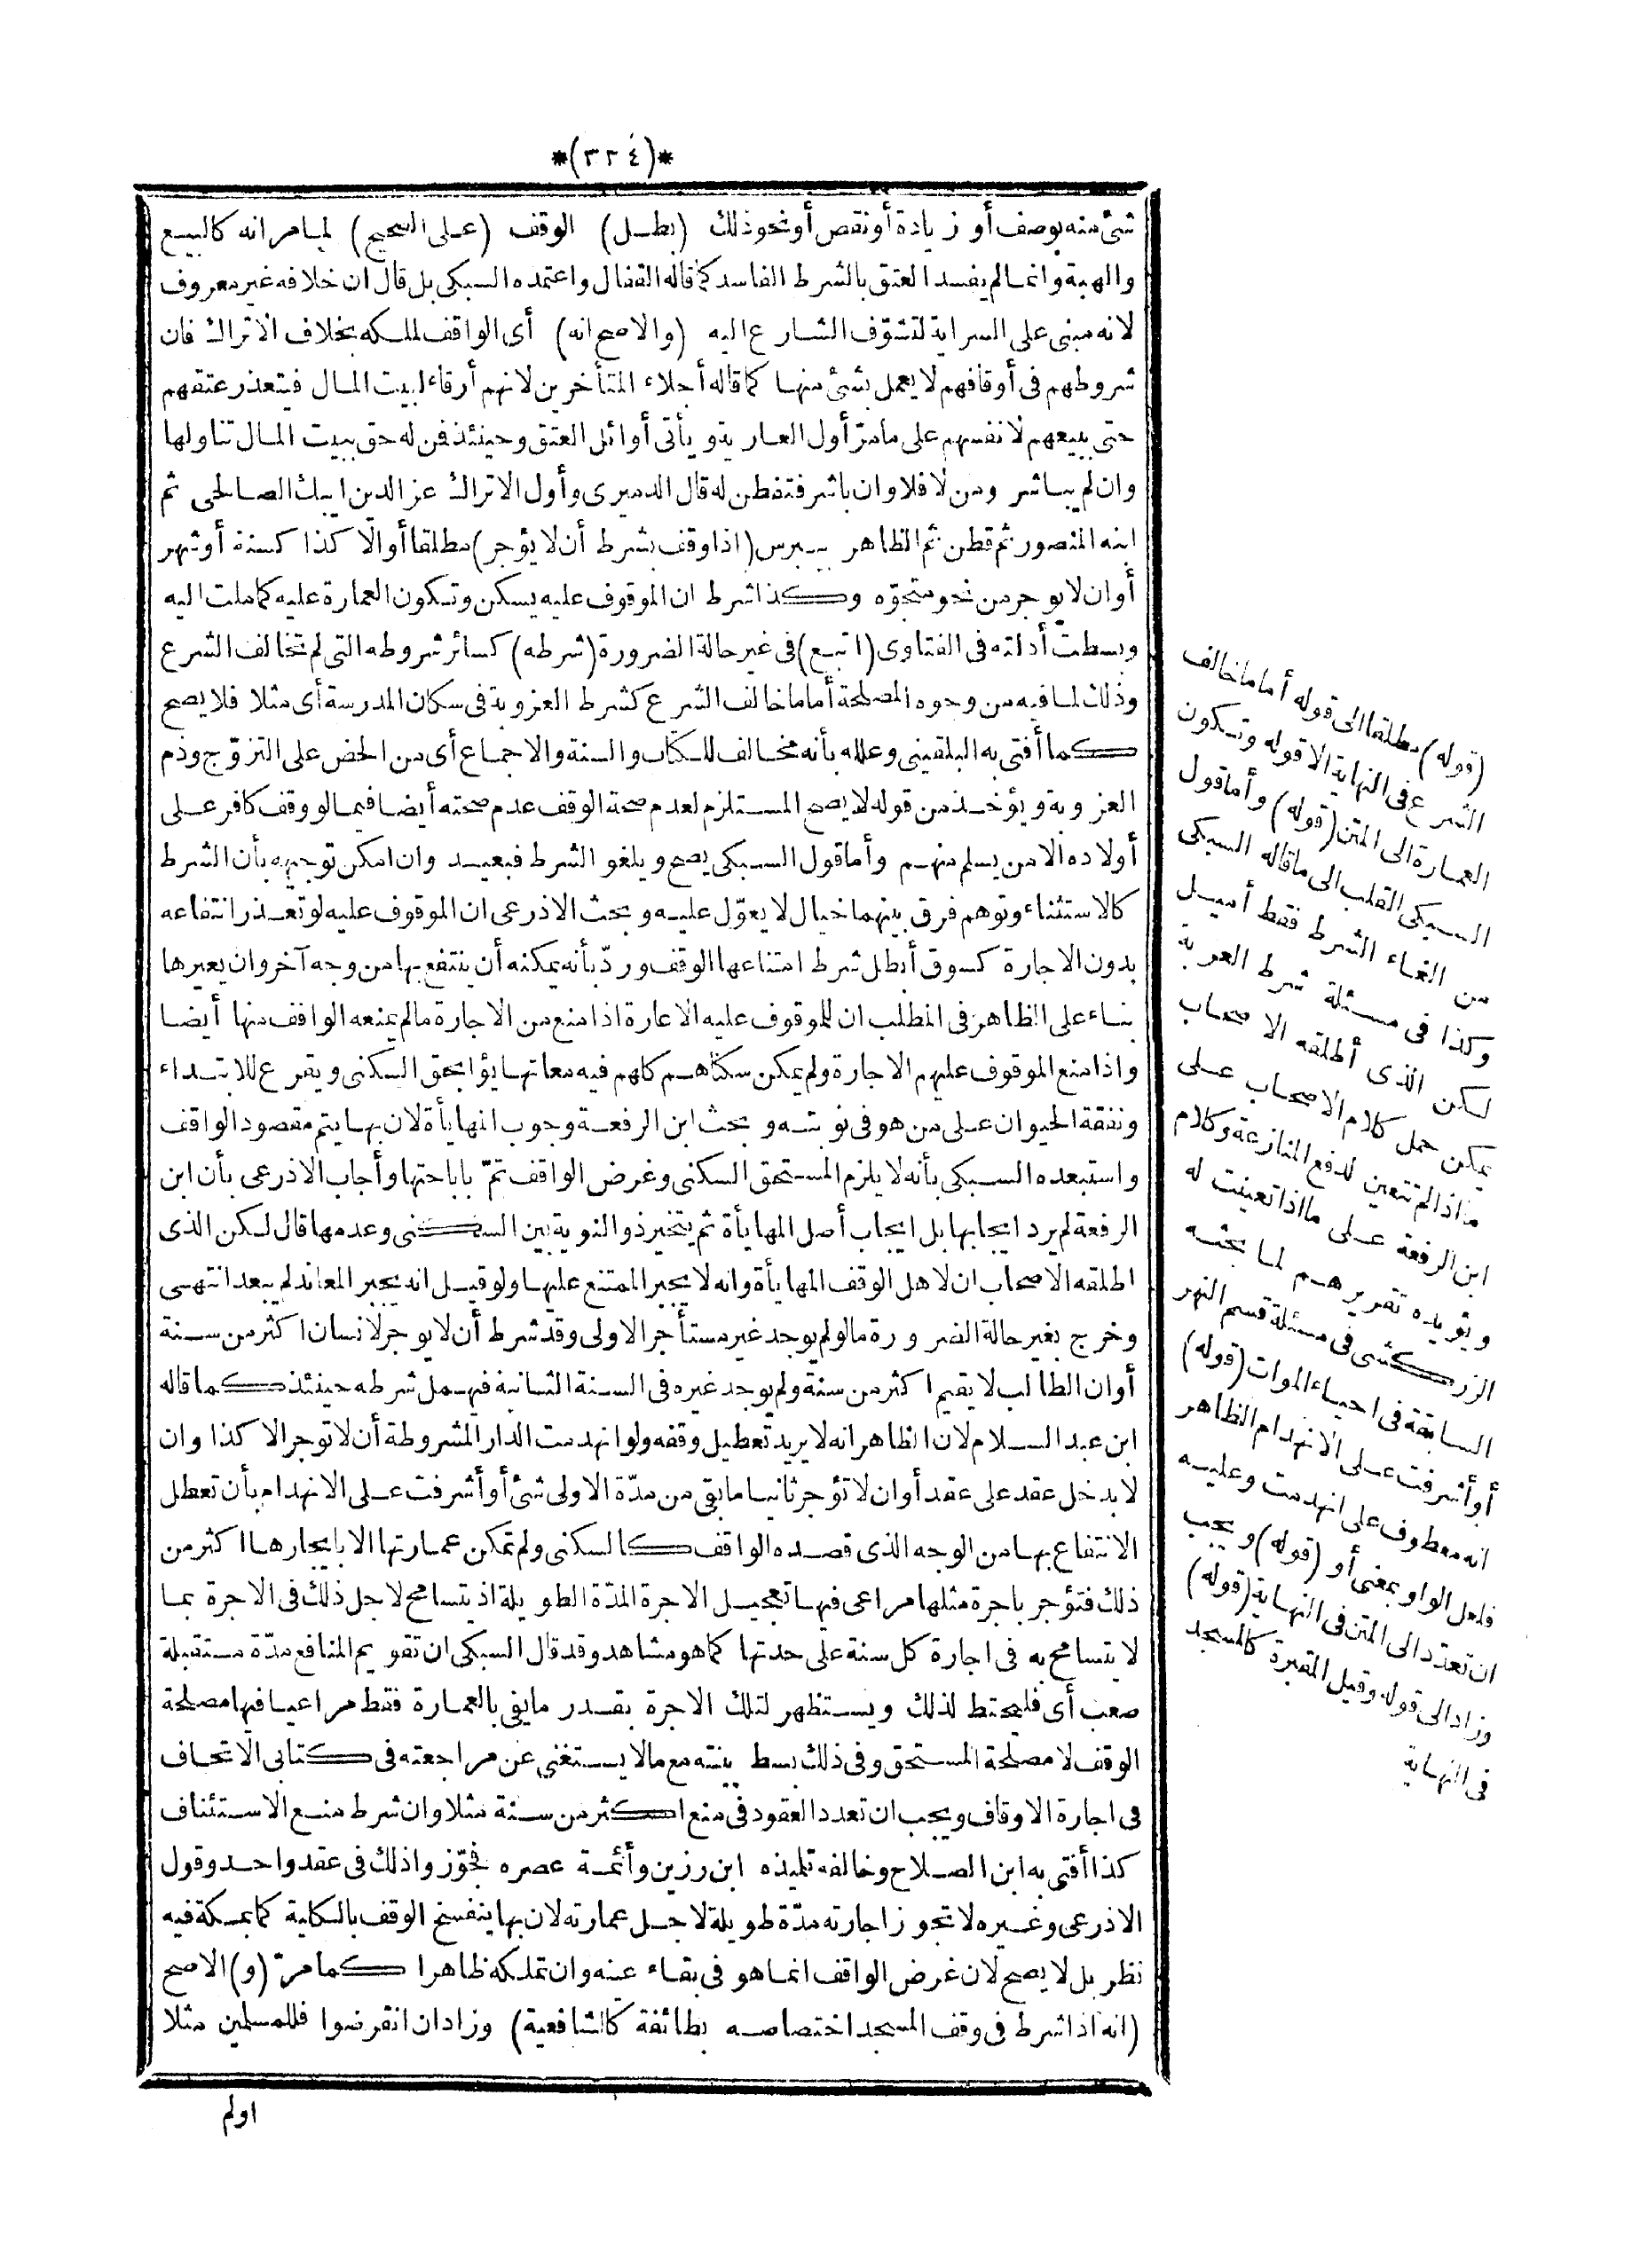 *(٣٢٤)*
شئ منه بوصف أو زيادة أو نقص أو نحو ذلك (بطل) الوقف (على الصحيح) لما مر انه كالبيع
والهبة وانما لم يفسد العتق بالشرط الفاسد كما قاله القفال واعتمده السبكى بل قال ان خلافه غير معروف
لانه مبنى على السراية لتشوّف الشارع اليه (والاصح انه) أى الواقف لملكه بخلاف الاتراك فان
شروطهم فى أوقافهم لا يعمل بشئ منها كما قاله أجلاء المتأخرين لانهم أرقاء لبيت المال فيتعذر عتقهم
حتى ببيعهم لانفسهم على ما مرّ أول العارية ويأتى أوائل العتق وحينئذ فمن له حق ببيت المال تناولها
وان لم يباشر ومن لا فلا وان باشر فتفطن له قال الدميرى وأول الاتراك عز الدين ايبك الصالحى ثم
ابنه المنصور ثم قطز ثم الظاهر بيبرس (اذا وقف بشرط أن لا يؤجر) مطلقا أو الّا كذا كسنة أو شهر
أو ان لا يوجر من نحو متجوّه وكذا شرط ان الموقوف عليه يسكن وتكون العمارة عليه كما ملت اليه
وبسطت أدلته فى الفتاوى (اتبع) فى غير حالة الضرورة (شرطه) كسائر شروطه التى لم تخالف الشرع
وذلك لما فيه من وجوه المصلحة أما ما خالف الشرع كشرط العزوبة فى سكان المدرسة أى مثلا فلا يصح
كما أفتى به البلقينى وعلله بأنه مخالف للكتاب والسنة والاجماع أى من الحض على التزوّج وذم
العزوبة ويؤخذ من قوله لا يصح المستلزم لعدم صحة الوقف عدم صحته أيضا فيما لو وقف كافر على
أولاده الا من يسلم منهم وأما قول السبكى يصح ويلغو الشرط فبعيد وان امكن توجيهه بأن الشرط
كالاستثناء وتوهم فرق بينهما خيال لا يعوّل عليه وبحث الاذرعى ان الموقوف عليه لو تعذر انتفاعه
بدون الاجارة كسوق أبطل شرط امتناعها الوقف وردّ بأنه يمكنه أن ينتفع بها من وجه آخر وان يعيرها
بناء على الظاهر فى المطلب ان للموقوف عليه الاعارة اذا منع من الاجارة ما لم يمنعه الواقف منها أيضا
واذا منع الموقوف عليهم الاجارة ولم يمكن سكناهم كلهم فيه معا تهايؤا بحق السكنى ويقرع للابتداء
ونفقة الحيوان على من هو فى نوبته وبحث ابن الرفعة وجوب المهايأة لان بها يتم مقصود الواقف
واستبعده السبكى بأنه لا يلزم المستحق السكنى وغرض الواقف تمّ باباحتها وأجاب الاذرعى بأن ابن
الرفعة لم يرد ايجابها بل ايجاب أصل المهايأة ثم يتخير ذو النوبة بين السكنى وعدمها قال لكن الذى
اطلقه الاصحاب ان لاهل الوقف المهايأة وانه لا يجبر الممتنع عليها ولو قيل انه يجبر المعاند لم يبعد انتهى
وخرج بغير حالة الضرورة ما لو لم يوجد غير مستأجر الاولى وقد شرط أن لا يوجر لانسان اكثر من سنة
أو ان الطالب لا يقيم اكثر من سنة ولم يوجد غيره فى السنة الثانية فيهمل شرطه حينئذ كما قاله
ابن عبد السلام لان الظاهر انه لا يريد تعطيل وقفه ولو انهدمت الدار المشروطة أن لا توجر الا كذا وان
لا يدخل عقد على عقد أو ان لا تؤجر ثانيا ما بقى من مدّة الاولى شئ أو أشرفت على الانهدام بأن تعطل
الانتفاع بها من الوجه الذى قصده الواقف كالسكنى ولم تمكن عمارتها الا بايجارها اكثر من
ذلك فتؤجر باجرة مثلها مراعى فيها تعجيل الاجرة المدّة الطويلة اذ يتسامح لاجل ذلك فى الاجرة بما
لا يتسامح به فى اجارة كل سنة على حدتها كما هو مشاهد وقد قال السبكى ان تقويم المنافع مدّة مستقبلة
صعب أى فليحتط لذلك ويستظهر لتلك الاجرة بقدر ما يفى بالعمارة فقط مراعيا فيها مصلحة
الوقف لا مصلحة المستحق وفى ذلك بسط بينته مع ما لا يستغنى عن مراجعته فى كتابى الاتحاف
فى اجارة الاوقاف ويجب ان تعدد العقود فى منع اكثر من سنة مثلا وان شرط منع الاستئناف
كذا أفتى به ابن الصلاح وخالفه تلميذه ابن رزين وأئمة عصره فجوّزوا ذلك فى عقد واحد وقول
الاذرعى وغيره لا تجوز اجارته مدّة طويلة لاجل عمارته لان بها ينفسخ الوقف بالكلية كما بمكة فيه
نظر بل لا يصح لان غرض الواقف انما هو فى بقاء عينه وان تملكه ظاهرا كما مرّ (و) الاصح
(انه اذا شرط فى وقف المسجد اختصاصه بطائفة كالشافعية) وزاد ان انقرضوا فللمسلمين مثلا
اولم
(قوله) مطلقا الى قوله أما ما خالف
الشرع فى النهاية الا قوله وتكون
العمارة الى المتن (قوله) وأما قول
السبكى القلب الى ما قاله السبكى
من الغاء الشرط فقط أميل
وكذا فى مسئلة شرط العزبة
لكن الذى أطلقه الاصحاب
يمكن حمل كلام الاصحاب على
ما اذا لم تتعين لدفع المنازعة وكلام
ابن الرفعة على ما اذا تعينت له
ويؤيده تقريرهم لما بحثه
الزركشى فى مسئلة قسم النهر
السابقة فى احياء الموات (قوله)
أو أشرفت على الانهدام الظاهر
انه معطوف على انهدمت وعليه
فلعل الواو بمعنى أو (قوله) ويجب
ان تعدد الى المتن فى النهاية (قوله)
وزاد الى قوله وقيل المقبرة كالمسجد
فى النهاية